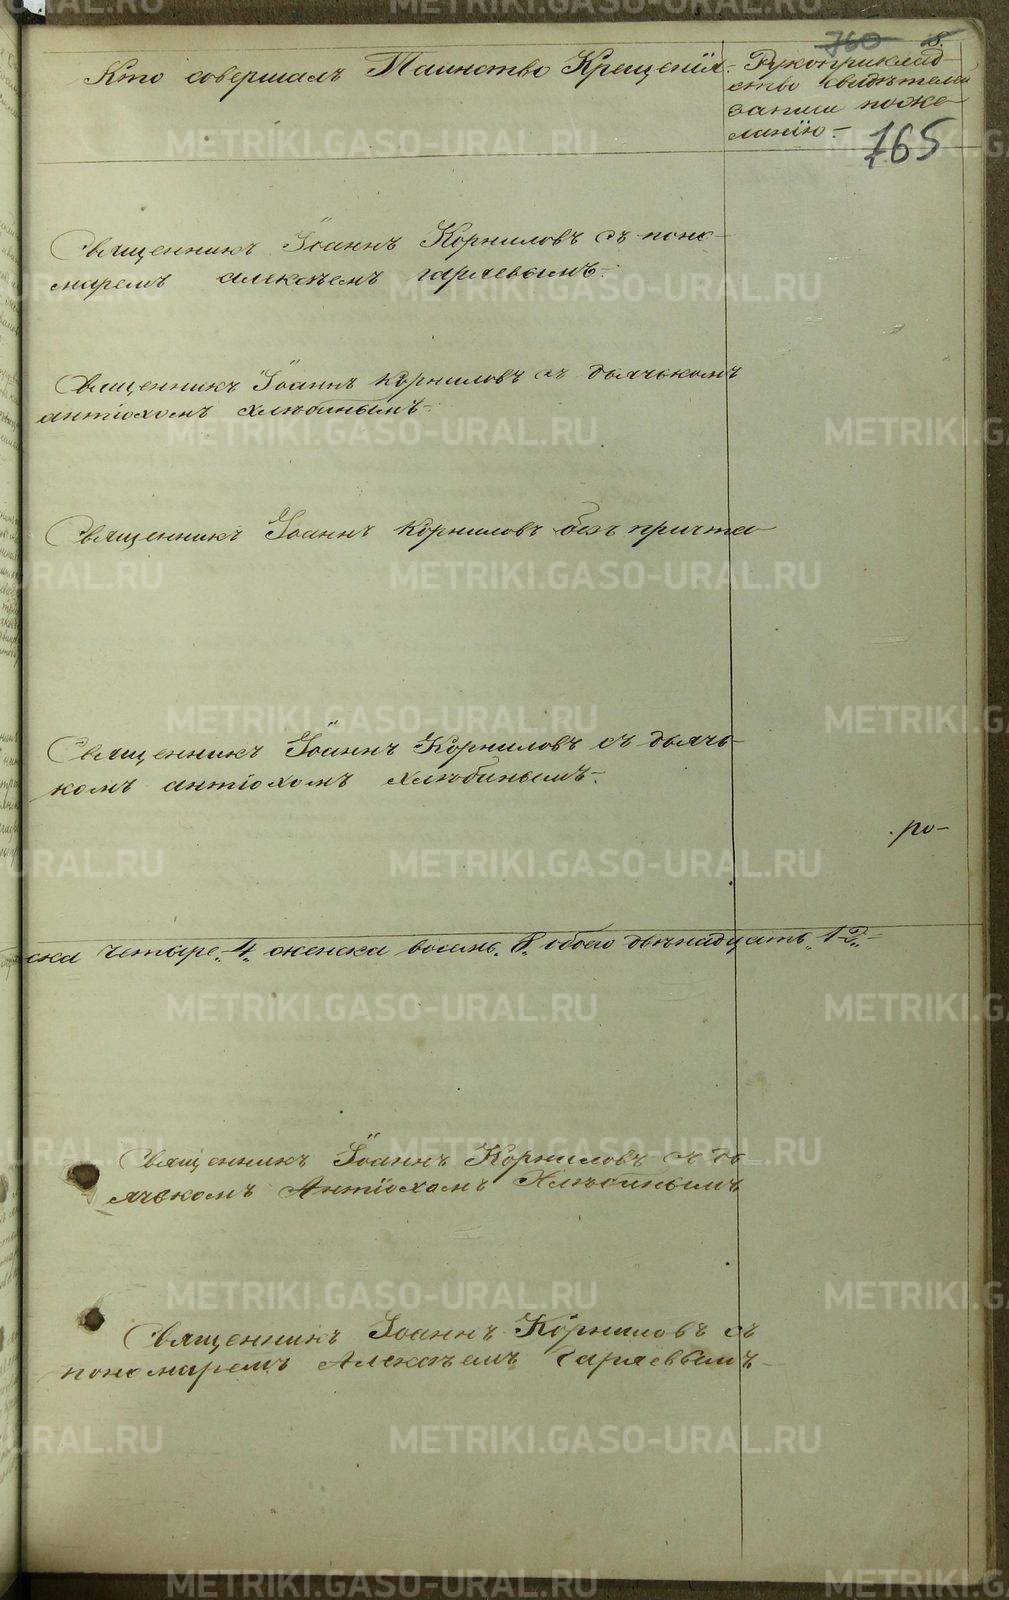 760 8.
Кто совершалъ Таинство Крещенія.
Рукоприклад-
ство свидѣтелей
записи по же-
ланію.-
765
Священникъ Іоаннъ Корниловъ съ поно-
маремъ алексѣемъ гаряевымъ.
Священникъ Іоаннъ Корниловъ съ дьячькомъ
антіохомъ хлюбинымъ.
Священникъ Іоаннъ Корниловъ безъ причта
Священникъ Іоаннъ Корниловъ съ дьячь-
комъ антіохомъ хлюбинымъ.
ро-
ска четыре „4„ женска восемь „8„ обоего двѣнадцать „12„
Священникъ Іоаннъ Корниловъ съ дь
ячькомъ Антіохомъ
Священникъ Іоаннъ Корниловъ съ
пономаремъ Алексѣемъ Гаряевымъ
METRIKI.GASO-URAL.RU